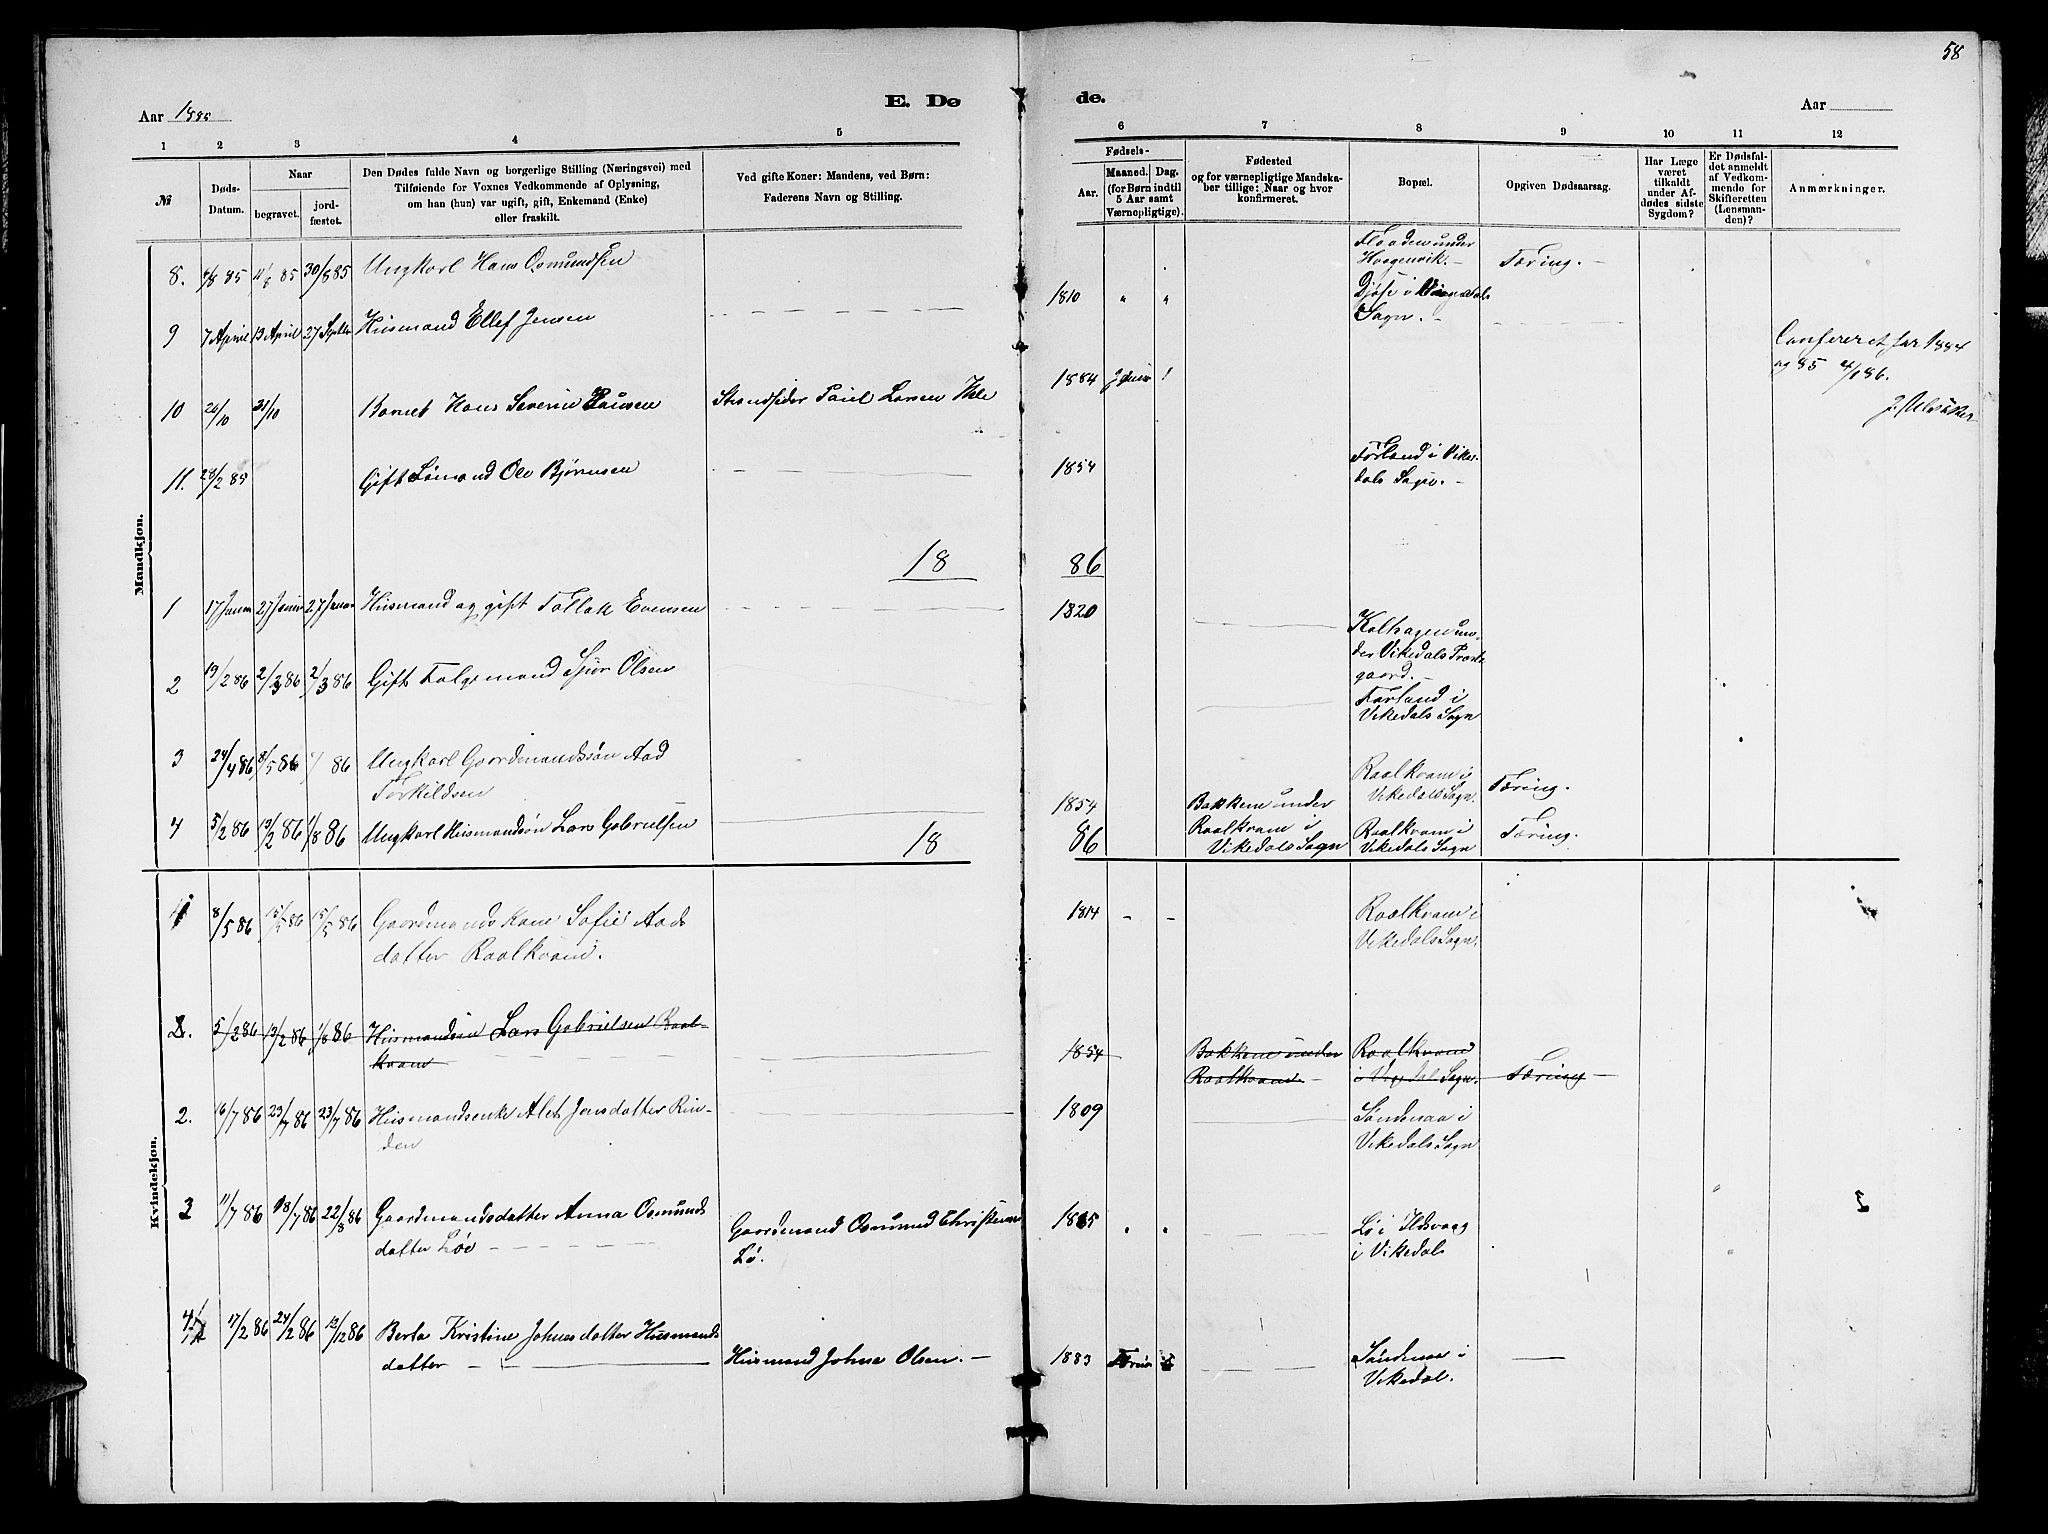 58
Aar 1885
E. Dø
de.
Aar
1 2 3 4 5 6 7 8 9 10 11 12
№
Døds-
Datum.
Naar
begravet.
jord-
fæstet.
Den Dødes fulde Navn og borgerlige Stilling (Næringsvei) med
Tilføiende for Voxnes Vedkommende af Oplysning,
om han (hun) var ugift, gift, Enkemand (Enke)
eller fraskilt.
Ved gifte Koner: Mandens, ved Børn:
Faderens Navn og Stilling.
Fødsels-
Aar.
Maaned. Dag.
(for Børn indtil
5 Aar samt
Værnepligtige).
Fødested
og for værnepligtige Mandska-
ber tillige: Naar og hvor
konfirmeret.
Bopæl.
Opgiven Dødsaarsag.
Har Læge
været
tilkaldt
under Af-
dødes sidste
Sygdom?
Er Dødsfal-
det anmeldt
af Vedkom-
mende for
Skifteretten
(Lensman-
den)?
Anmærkninger.
Mandkjøn.
8. 4/8 85 11/8 85 30/8 85 Ungkarl Hans Osmundsen
Flooden under
Haagenvik. - Tæring. -
9 7 April 13 April 27 Septbr Husmand Ellef Jensen
1810 " " Djøse i
Sogn. -
Confereret for 1884
og 85 4/1 86.
10 26/10 31/10 Barnet Hans Severin Paulsen Strandsider Paul Larsen
1884
11. 28/2 85 Gift Lømand Ole Bjørnsen
1854 Førland i Vike-
dals Sogn. -
18 86
1 17 Janu 27 Janu 27 Janu Husmand og gift Tollak Evensen
1820 Kolhagen un-
der Vikedals Præste
gaard. -
2 19/2 86 2/3 86 2/3 86 Gift Folgemand Sjur Olsen
Førland i
Vikedals Sogn
3 24/4 86 8/5 86 86 Ungkarl Gaardmandssøn Aad
Torkildsen
Raalkvam i
Vikedals Sogn. Tæring.
4 5/2 86 13/2 86 1/8 86 Ungkarl Husmandsøn Lars Gabrielsen
1854 Bakkene under
Raalkvam i
Vikedals Sogn Raalkvam i
Vikedals Sogn Tæring.
18 86
Kvindekjøn.
1 8/5 86 15/5 86 15/5 86 Gaardmands Kone Sofie Aads
datter Raalkvam.
1814 - - Raalkvam i
Vikedals Sogn.
2. 5/2 86 13/2 86 1/8 86 Husmandsøn Lars Gabrielsen Raal-
kvam
1854 Bakkene under
Raalkvam - Raalkvam
i Vigedal Sogn. Tæring -
2. 16/7 86 23/7 86 23/7 86 Husmandsenke Alet Jensdatter Rin-
den
1809 Søndenaa i
Vikedals Sogn
3 11/7 86 18/7 86 22/8 86 Gaardmandsdatter Anna Osmunds
datter Løe
Gaardmand Osmund Christensen
Lø.
1865 " " Lø i Ilsvaag
i Vikedals
4. 17/2 86 24/2 86 12/12 86 Berta Kristine Johnsdatter Husmands
datter -
Husmand Johne Olsen. -
1883 Søndenaa i
Vikedal.